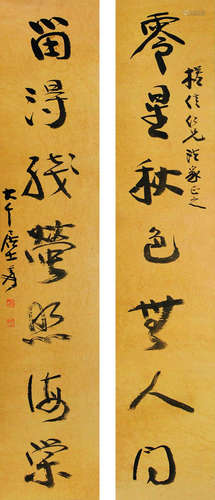 零星秋色無人問
仁兄法家正之
留得殘螢照海棠
大千居士爰